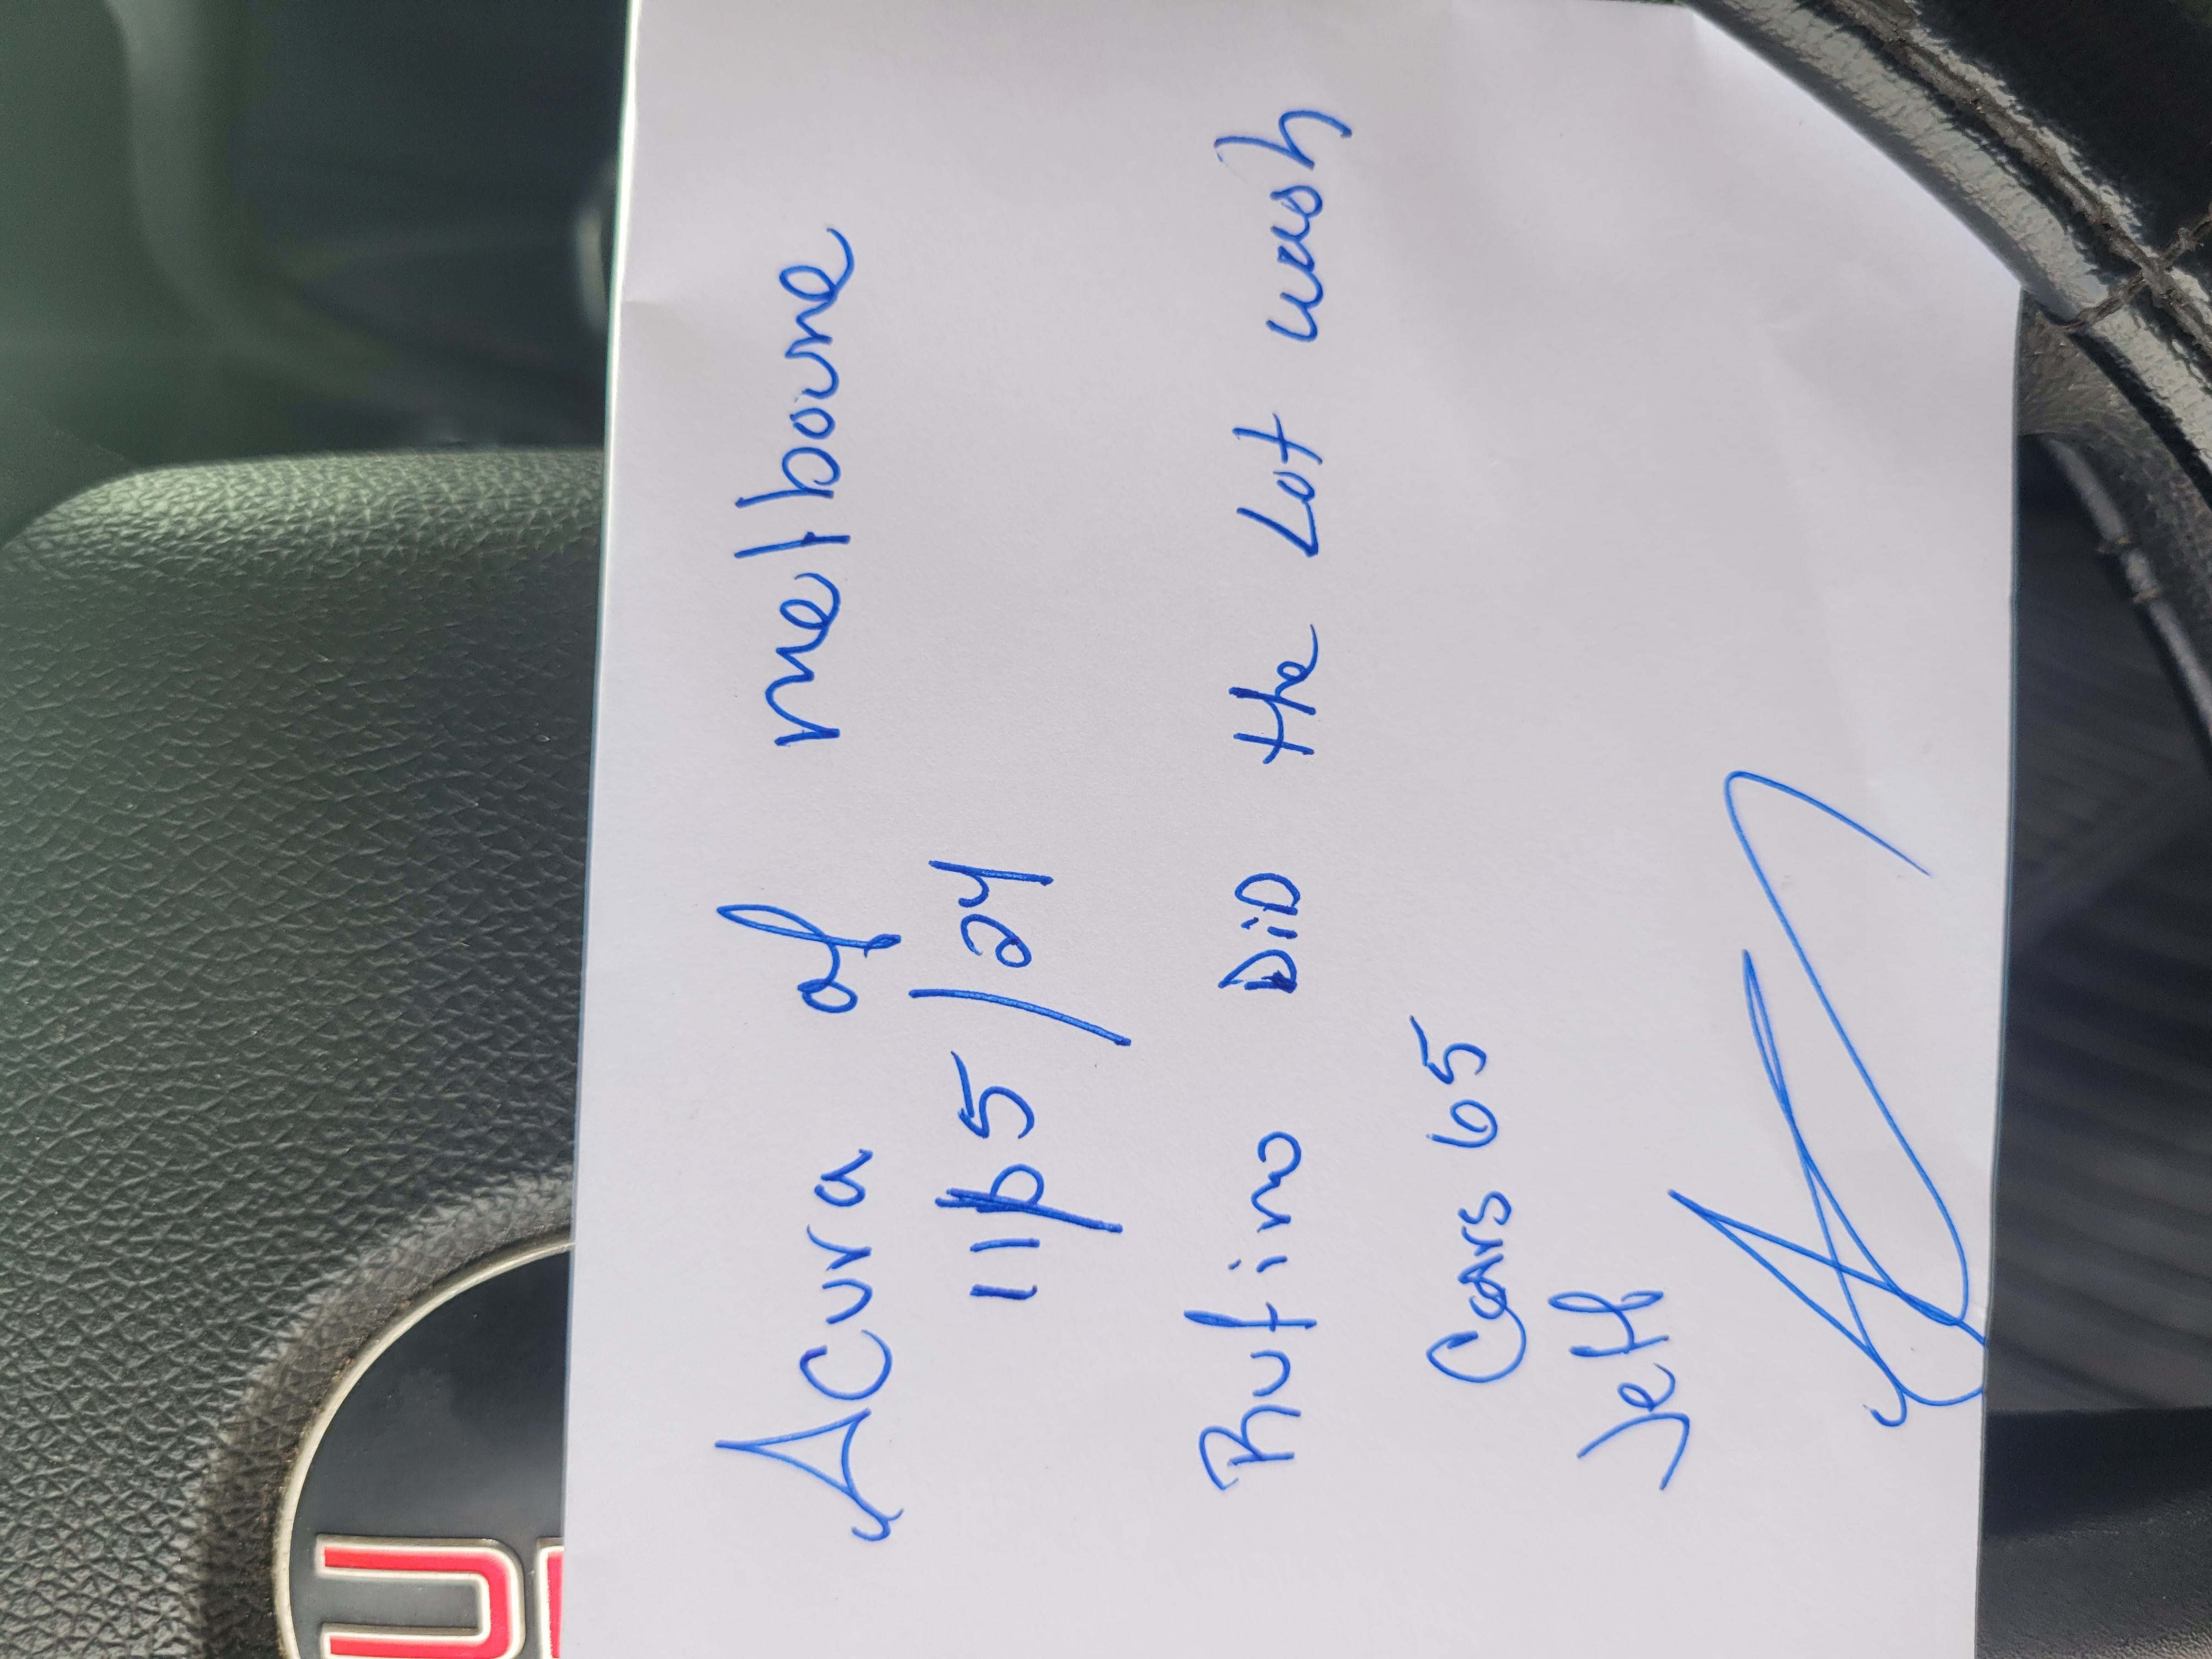 Acura of melbourne
11/25/24
Rufino DiD the Lot wash
Cars 65
Jeff